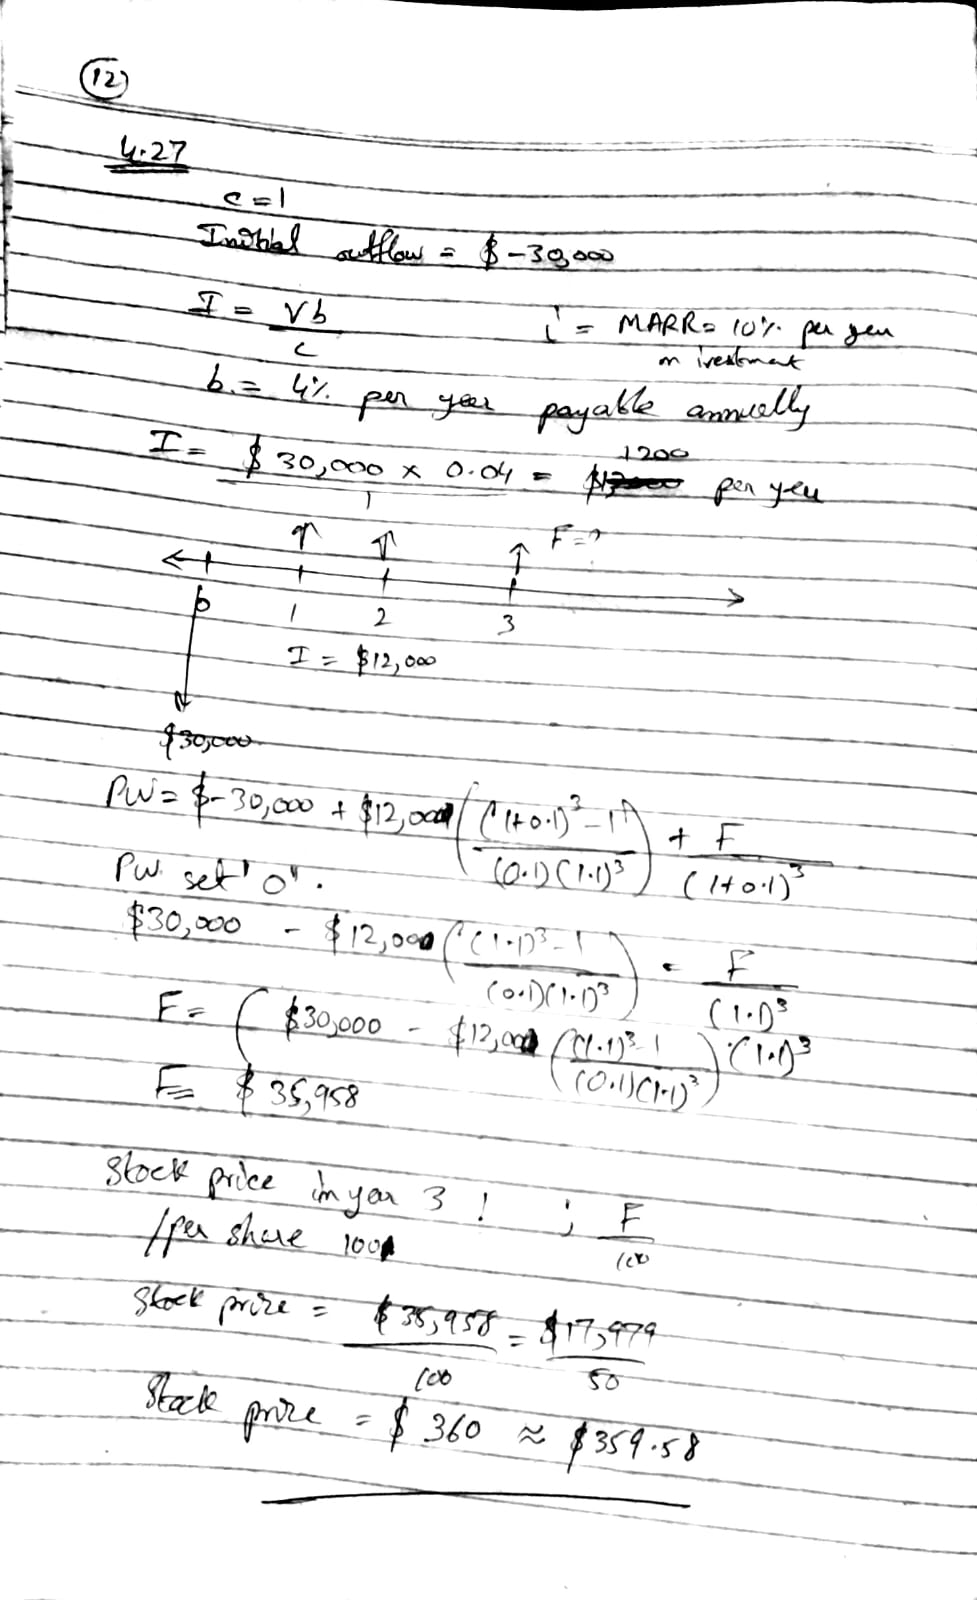 12
4.27
c = 1
Initial outflow = $ -30,000
I = Vb / c
i = MARR = 10% per year
on investment
b = 4% per year payable annually
I = $ 30,000 x 0.04 / 1 = 1200 per year
F = ?
0 1 2 3
I = $12,000
$30,000
PW = $-30,000 + $12,000 ( (1+0.1)^3 - 1 / (0.1)(1.1)^3 ) + F / (1+0.1)^3
PW set "0".
$30,000 - $12,000 ( (1.1)^3 - 1 / (0.1)(1.1)^3 ) = F / (1.1)^3
F = ( $30,000 - $12,000 ( (1.1)^3 - 1 / (0.1)(1.1)^3 ) · (1.1)^3
F = $ 35,958
Stock price in year 3 ! ; F / 100
/per share 100
Stock price = $ 35,958 / 100 = $17,979 / 50
Stock price = $ 360 ≈ $359.58